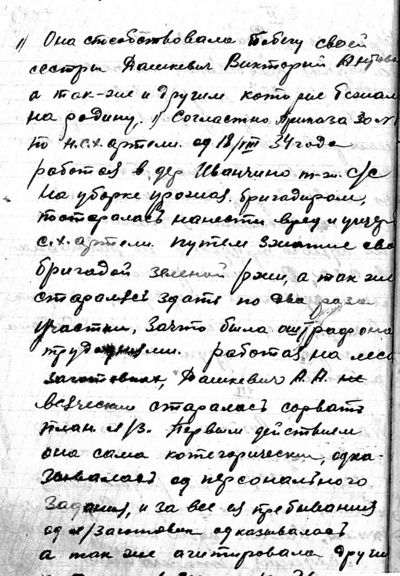 1) Она способствовала побегу своей
сестры Дашкевич Виктории Антоно
а так-же и другим которые бежали
на родину. 1) Согласно Приказа
по н.с.х. артели. од 18/VIII 34 года
работая в дер Иванчино с/с
на уборке урожая бригадиром,
постаралась нанести вред и ущерб
с.х. артели. путем зжатие сво
бригадой зеленой ржи, а так же
старалась здать по два раза
участки, за что была оштрафона
труднями. работая, на лесо
заготовках, Дашкевич А. А. не
всячески старалась сорвать
план л/з. Первым действием
она сама котегорически, одка-
зывалась од персонального
задания, и за все ея пребывания
од л/заготовок одказывалась
а так же агитировала други